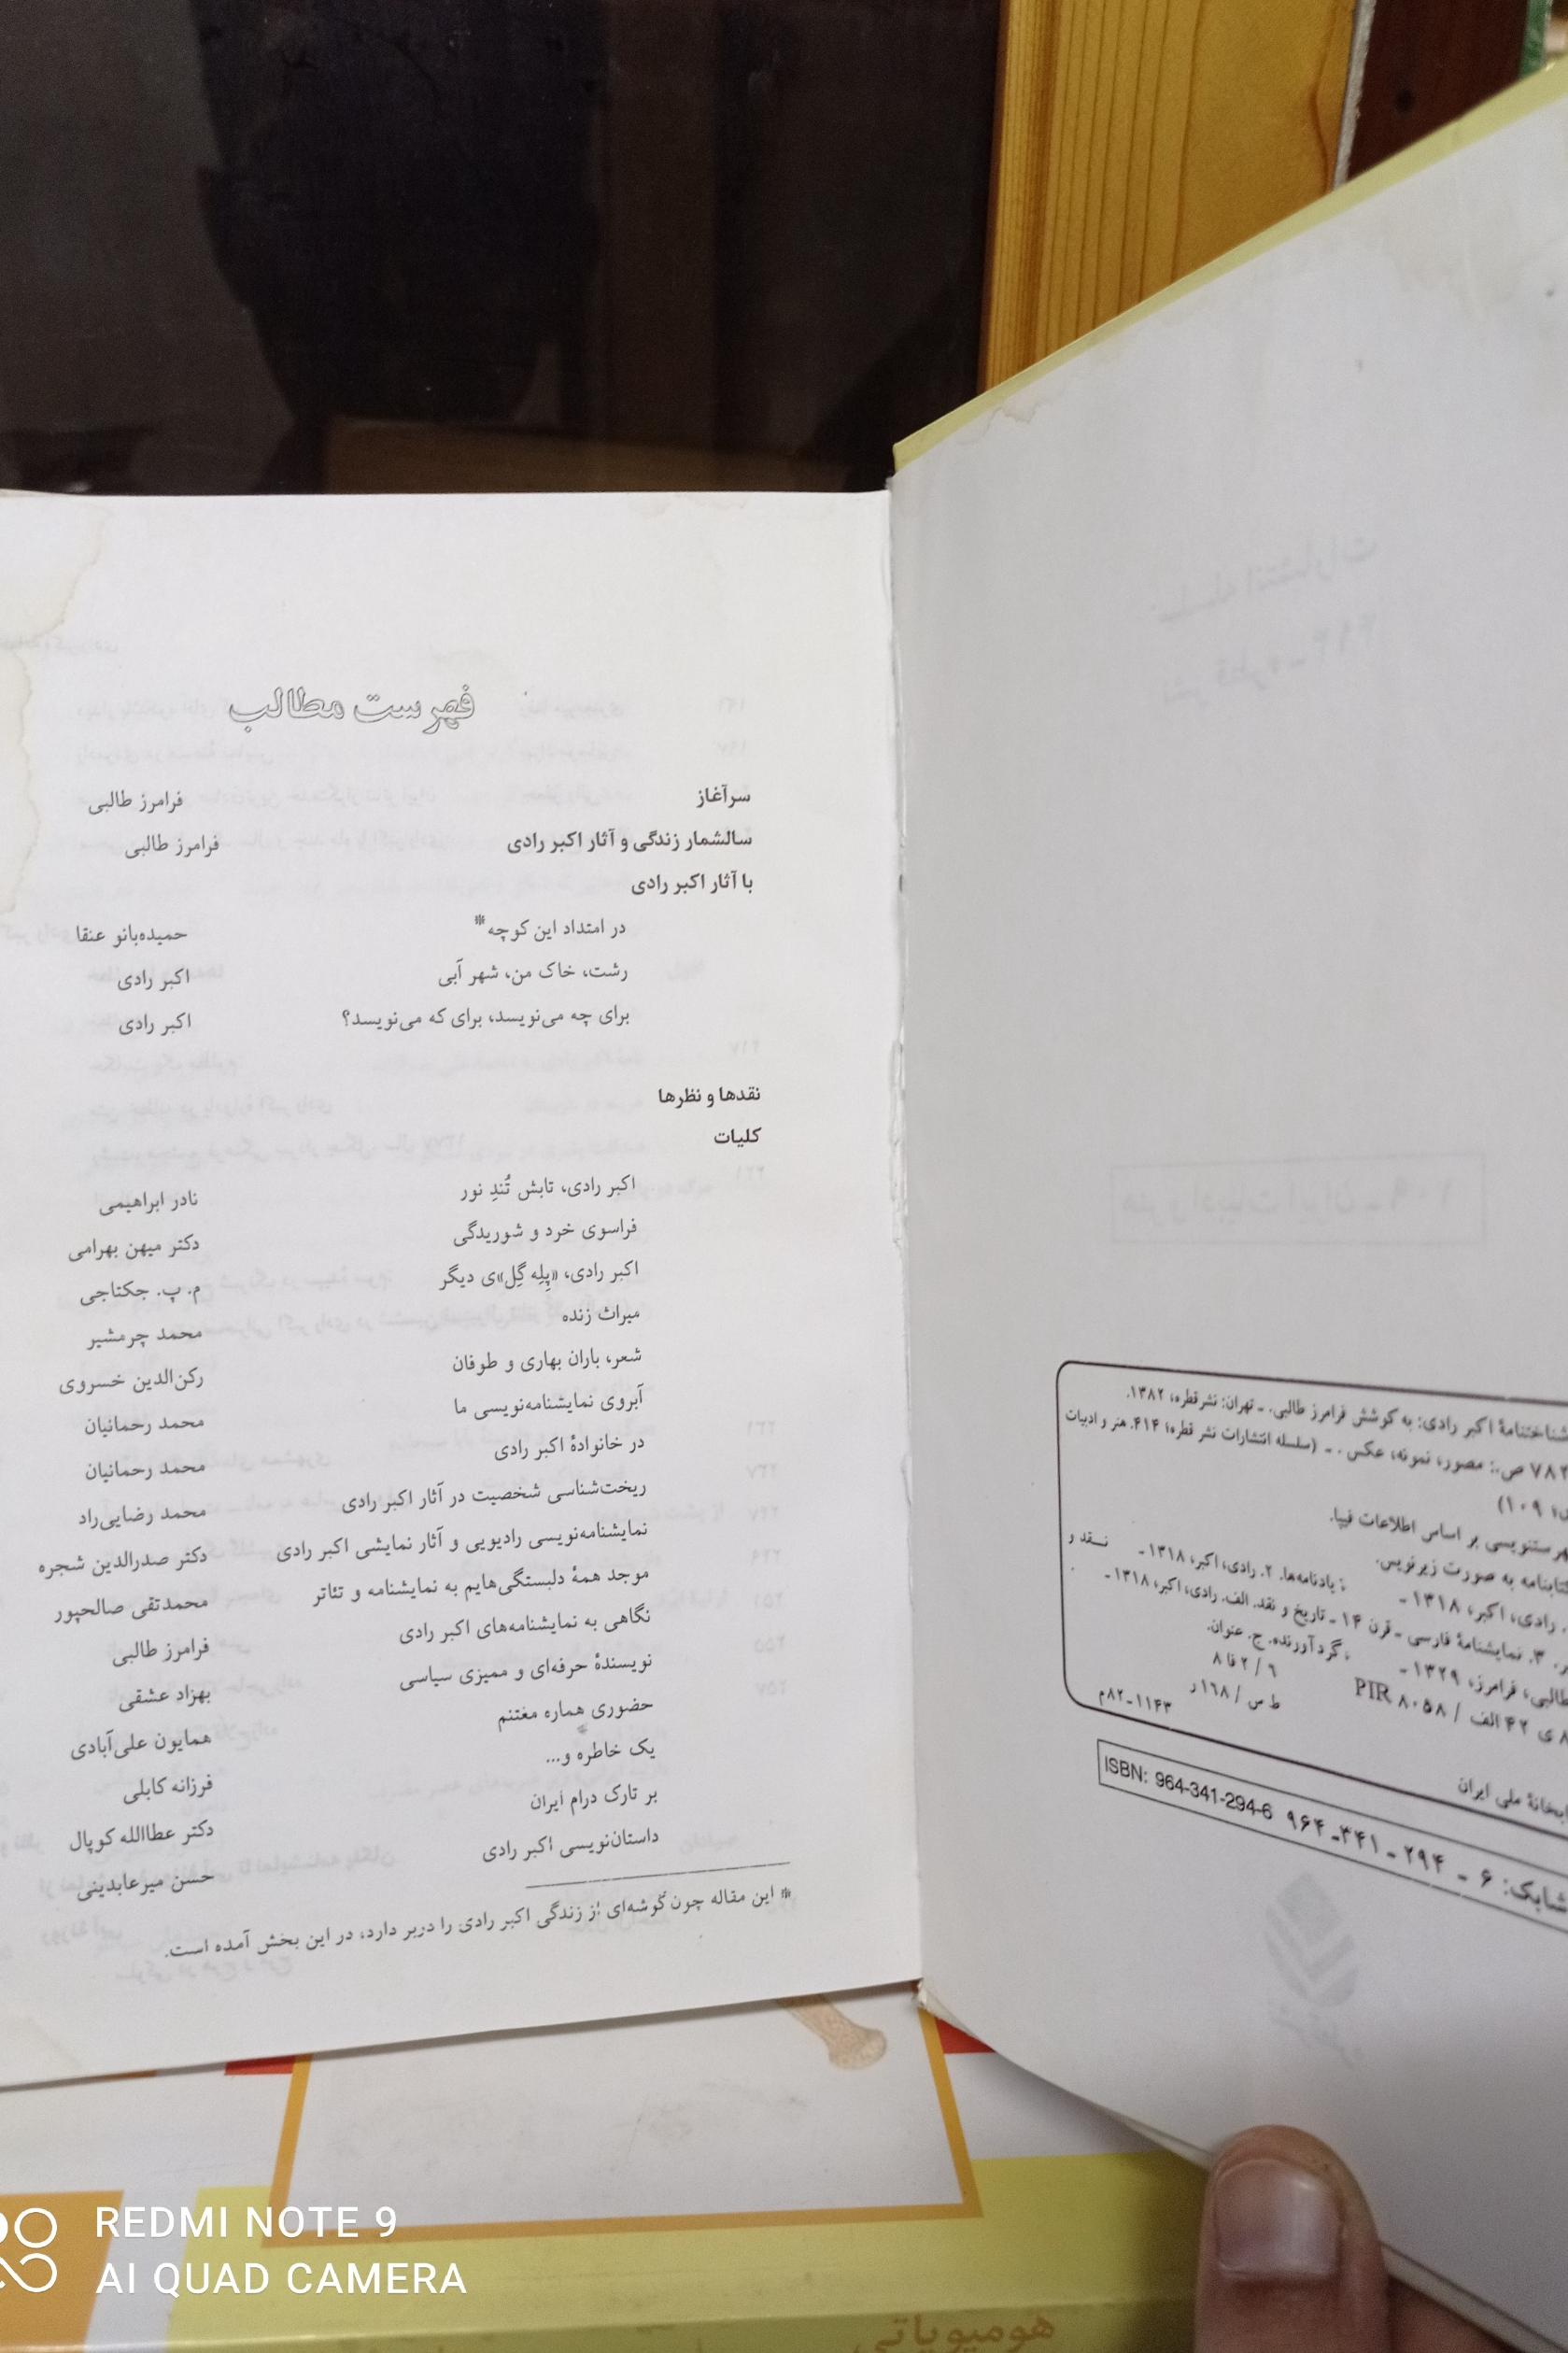 شناختنامهٔ اکبر رادی: به کوشش فرامرز طالبی. ـ تهران: نشر قطره، ۱۳۸۲.
۷۸۲ ص.: مصور، نمونه، عکس . ـ (سلسله انتشارات نشر قطره؛ ۴۱۴. هنر و ادبیات
۱۰۹)
فهرستنویسی بر اساس اطلاعات فیپا.
کتابنامه به صورت زیرنویس.
رادی، اکبر، ۱۳۱۸ ـ ؛ یادنامه‌ها. ۲. رادی، اکبر، ۱۳۱۸ ـ نـقد و
۳. نمایشنامهٔ فارسی ـ قرن ۱۴ ـ تاریخ و نقد. الف. رادی، اکبر، ۱۳۱۸ ـ .
طالبی، فرامرز، ۱۳۲۹ ـ ، گردآورنده. ج. عنوان.
۶ / ۲ فا ۸
۸ ی ۴۲ الف / PIR ۸۰۵۸
ط س / ۱۶۸ ر
۱۱۴۳-۸۲م
کتابخانهٔ ملی ایران
شابک: ۶ ـ ۲۹۴ ـ ۳۴۱ـ ۹۶۴ ISBN: 964-341-294-6
فهرست مطالب
سرآغاز فرامرز طالبی
سالشمار زندگی و آثار اکبر رادی فرامرز طالبی
با آثار اکبر رادی
در امتداد این کوچه* حمیده‌بانو عنقا
رشت، خاک من، شهر آبی اکبر رادی
برای چه می‌نویسد، برای که می‌نویسد؟ اکبر رادی
نقدها و نظرها
کلیات
اکبر رادی، تابش تُندِ نور نادر ابراهیمی
فراسوی خرد و شوریدگی دکتر میهن بهرامی
اکبر رادی، «پِلِه گِل»ی دیگر م. پ. جکتاجی
میراث زنده محمد چرمشیر
شعر، باران بهاری و طوفان رکن‌الدین خسروی
آبروی نمایشنامه‌نویسی ما محمد رحمانیان
در خانوادهٔ اکبر رادی محمد رحمانیان
ریخت‌شناسی شخصیت در آثار اکبر رادی محمد رضایی‌راد
نمایشنامه‌نویسی رادیویی و آثار نمایشی اکبر رادی دکتر صدرالدین شجره
موجد همهٔ دلبستگی‌هایم به نمایشنامه و تئاتر محمدتقی صالحپور
نگاهی به نمایشنامه‌های اکبر رادی فرامرز طالبی
نویسندهٔ حرفه‌ای و ممیزی سیاسی بهزاد عشقی
حضوری هماره مغتنم همایون علی‌آبادی
یک خاطره و... فرزانه کابلی
بر تارک درام ایران دکتر عطاالله کوپال
داستان‌نویسی اکبر رادی حسن میرعابدینی
* این مقاله چون گوشه‌ای از زندگی اکبر رادی را دربر دارد، در این بخش آمده است.
هومیوپاتی
REDMI NOTE 9
AI QUAD CAMERA